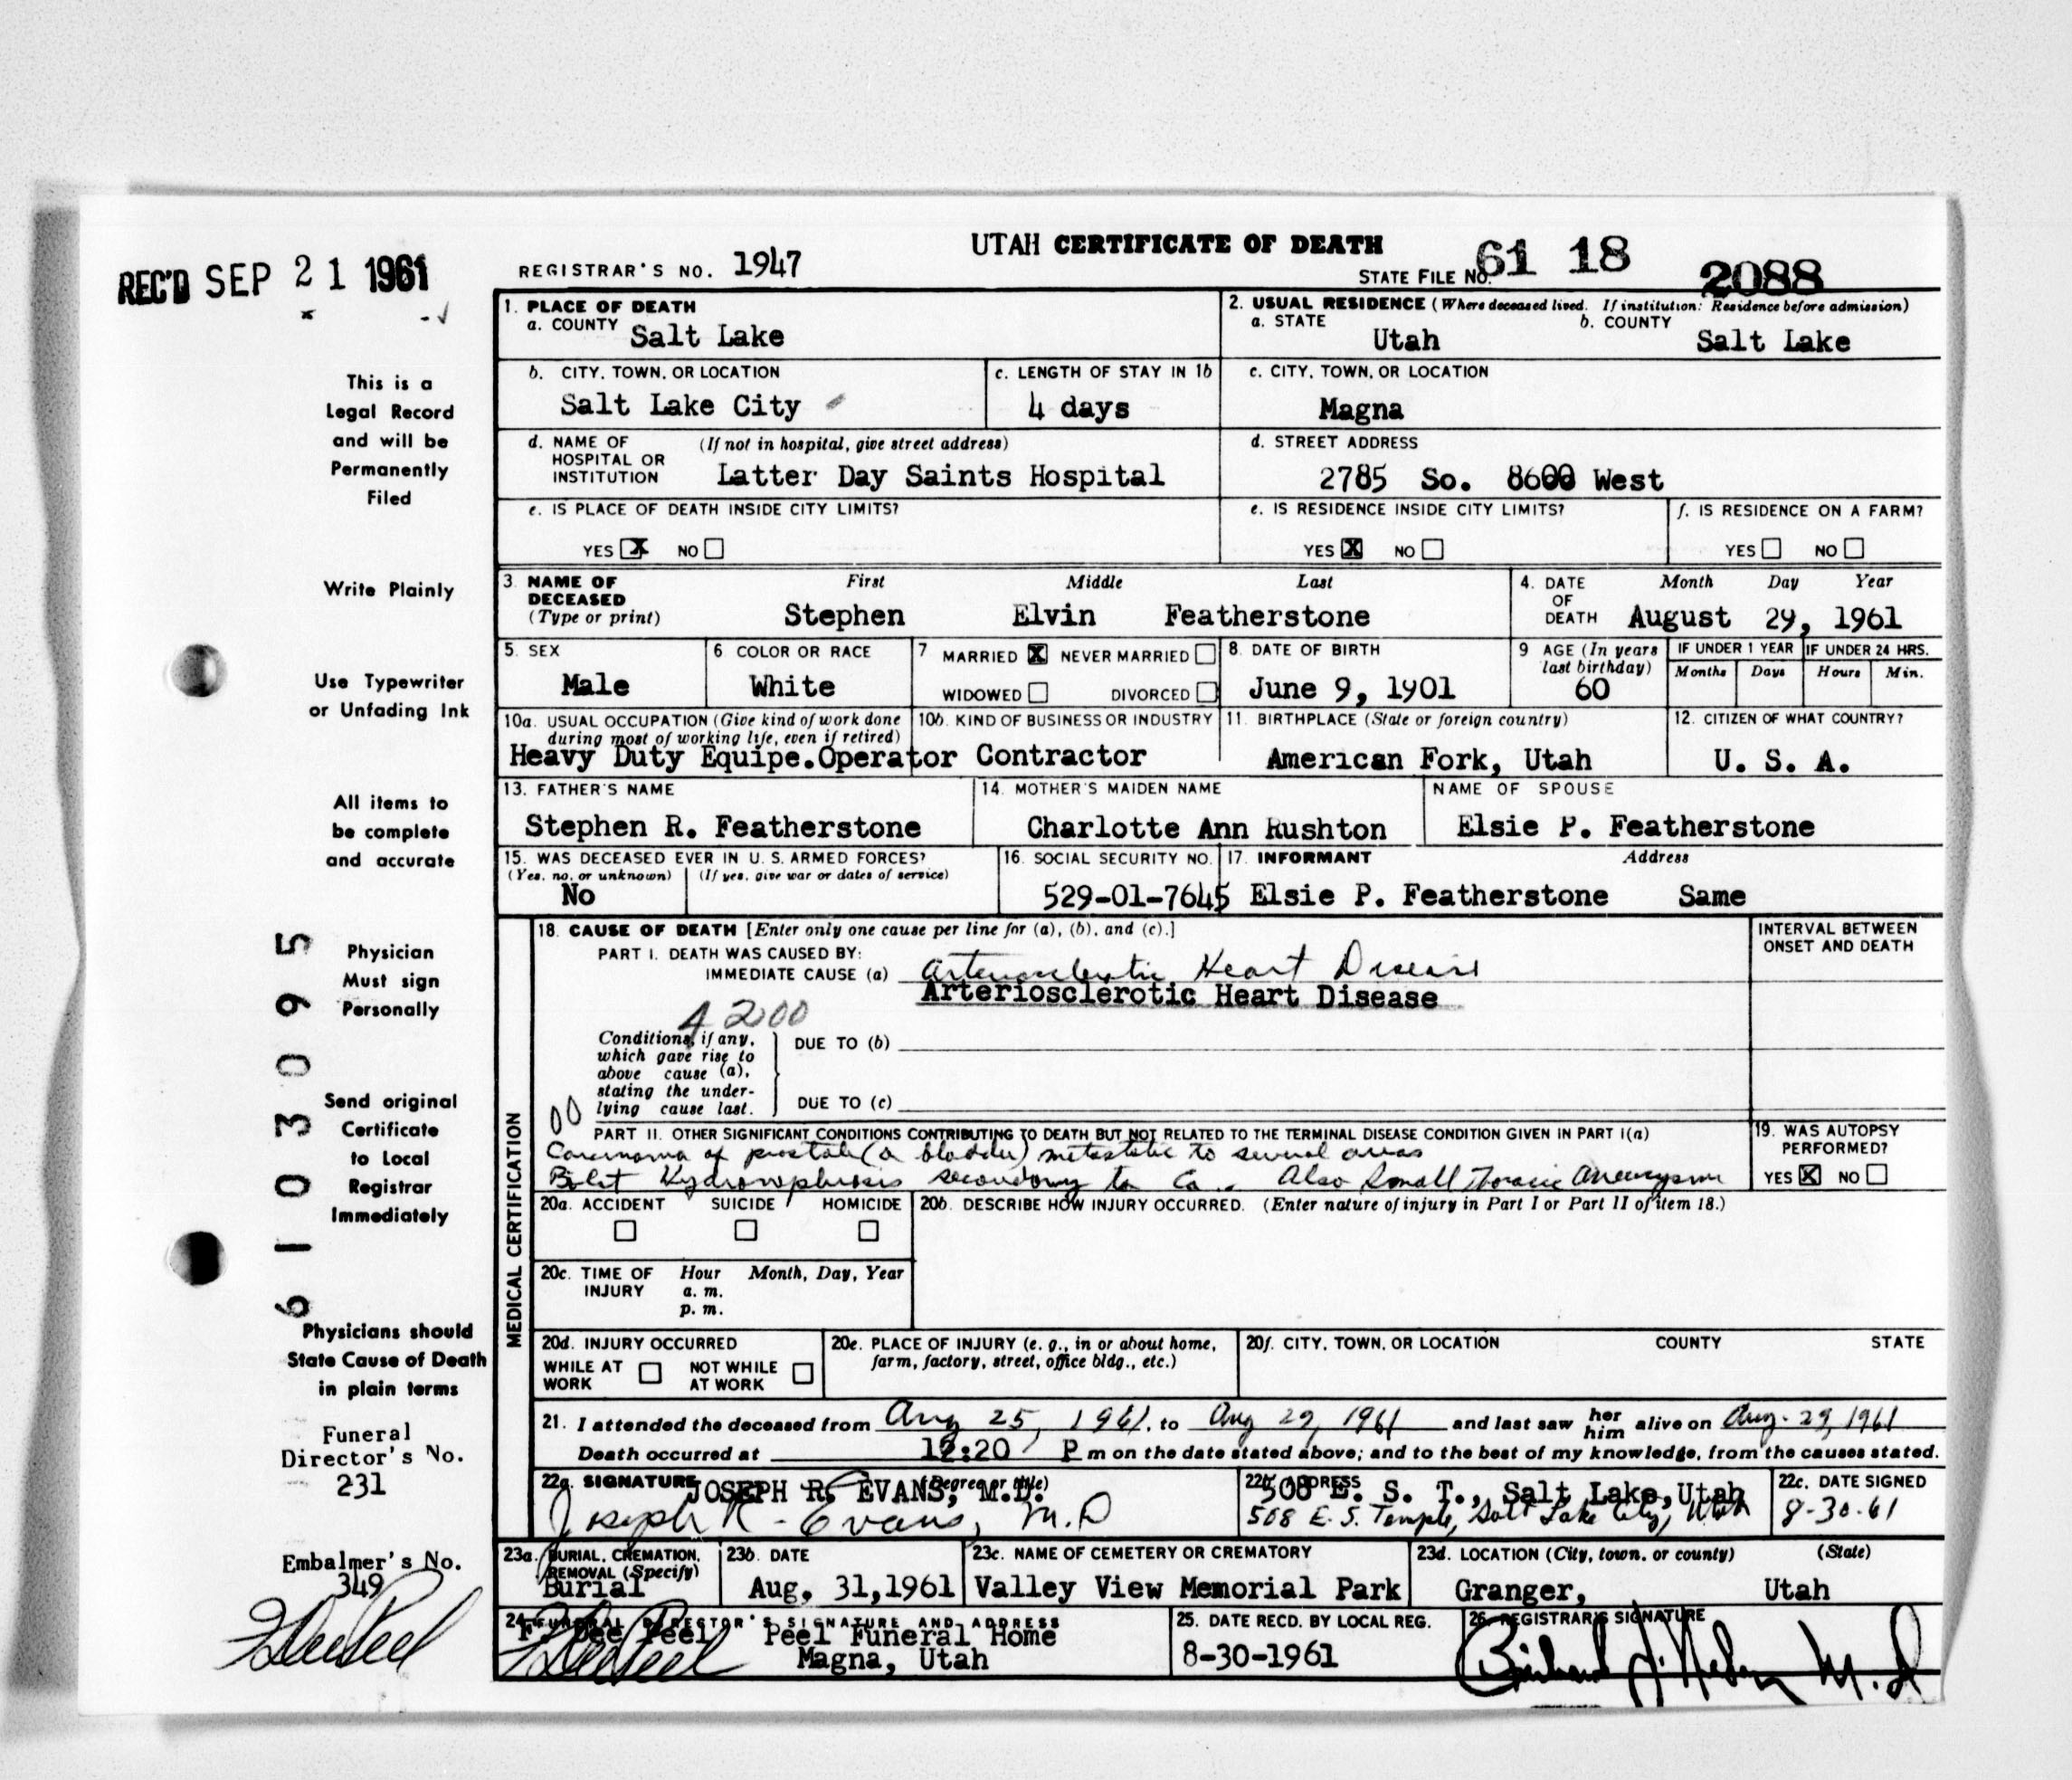 UTAH CERTIFICATE OF DEATH
REC'D SEP 21 1961
REGISTRAR'S NO. 1947
STATE FILE NO. 61 18 2088
This is a
Legal Record
and will be
Permanently
Filed
Write Plainly
Use Typewriter
or Unfading Ink
All items to
be complete
and accurate
Physician
Must sign
Personally
Send original
Certificate
to Local
Registrar
Immediately
Physicians should
State Cause of Death
in plain terms
Funeral
Director's No.
231
Embalmer's No.
349
61 03095
1. PLACE OF DEATH
a. COUNTY Salt Lake
2. USUAL RESIDENCE (Where deceased lived. If institution: Residence before admission)
a. STATE Utah b. COUNTY Salt Lake
b. CITY, TOWN, OR LOCATION
Salt Lake City
c. LENGTH OF STAY IN 1b
4 days
c. CITY, TOWN, OR LOCATION
Magna
d. NAME OF HOSPITAL OR INSTITUTION (If not in hospital, give street address)
Latter Day Saints Hospital
d. STREET ADDRESS
2785 So. 8600 West
e. IS PLACE OF DEATH INSIDE CITY LIMITS?
YES X NO
e. IS RESIDENCE INSIDE CITY LIMITS?
YES X NO
f. IS RESIDENCE ON A FARM?
YES NO
3. NAME OF DECEASED (Type or print) First Middle Last
Stephen Elvin Featherstone
4. DATE OF DEATH Month Day Year
August 29, 1961
5. SEX
Male
6 COLOR OR RACE
White
7 MARRIED X NEVER MARRIED
WIDOWED DIVORCED
8. DATE OF BIRTH
June 9, 1901
9 AGE (In years last birthday)
60
IF UNDER 1 YEAR
Months Days
IF UNDER 24 HRS.
Hours Min.
10a. USUAL OCCUPATION (Give kind of work done during most of working life, even if retired)
Heavy Duty Equipe.Operator
10b. KIND OF BUSINESS OR INDUSTRY
Contractor
11. BIRTHPLACE (State or foreign country)
American Fork, Utah
12. CITIZEN OF WHAT COUNTRY?
U. S. A.
13. FATHER'S NAME
Stephen R. Featherstone
14. MOTHER'S MAIDEN NAME
Charlotte Ann Rushton
NAME OF SPOUSE
Elsie P. Featherstone
15. WAS DECEASED EVER IN U. S. ARMED FORCES?
(Yes, no, or unknown) (If yes, give war or dates of service)
No
16. SOCIAL SECURITY NO.
529-01-7645
17. INFORMANT Address
Elsie P. Featherstone Same
MEDICAL CERTIFICATION
18. CAUSE OF DEATH [Enter only one cause per line for (a), (b), and (c).]
INTERVAL BETWEEN
ONSET AND DEATH
PART I. DEATH WAS CAUSED BY:
IMMEDIATE CAUSE (a) Arteriosclerotic Heart Disease
Arteriosclerotic Heart Disease
4200
Conditions, if any,
which gave rise to
above cause (a),
stating the under-
lying cause last.
DUE TO (b)
DUE TO (c)
00
PART II. OTHER SIGNIFICANT CONDITIONS CONTRIBUTING TO DEATH BUT NOT RELATED TO THE TERMINAL DISEASE CONDITION GIVEN IN PART I(a)
Carcinoma of prostate (or bladder) metastatic to several areas
Bilat Hydronephrosis secondary to Ca. Also Small Thoracic Aneurysm
19. WAS AUTOPSY
PERFORMED?
YES X NO
20a. ACCIDENT SUICIDE HOMICIDE
20b. DESCRIBE HOW INJURY OCCURRED. (Enter nature of injury in Part I or Part II of item 18.)
20c. TIME OF INJURY Hour Month, Day, Year
a. m.
p. m.
20d. INJURY OCCURRED
WHILE AT WORK NOT WHILE AT WORK
20e. PLACE OF INJURY (e. g., in or about home, farm, factory, street, office bldg., etc.)
20f. CITY, TOWN, OR LOCATION COUNTY STATE
21. I attended the deceased from Aug 25, 1961, to Aug 29, 1961 and last saw her him alive on Aug. 29, 1961
Death occurred at 12:20 P m on the date stated above; and to the best of my knowledge, from the causes stated.
22a. SIGNATURE (Degree or title)
JOSEPH R. EVANS, M.D.
Joseph R. Evans, M.D
22b. ADDRESS
508 E. S. T., Salt Lake, Utah
508 E. S. Temple, Salt Lake City, Utah
22c. DATE SIGNED
8-30-61
23a. BURIAL, CREMATION, REMOVAL (Specify)
Burial
23b. DATE
Aug. 31,1961
23c. NAME OF CEMETERY OR CREMATORY
Valley View Memorial Park
23d. LOCATION (City, town, or county) (State)
Granger, Utah
24 FUNERAL DIRECTOR'S SIGNATURE AND ADDRESS
F. Dee Peel Peel Funeral Home
Magna, Utah
25. DATE RECD. BY LOCAL REG.
8-30-1961
26. REGISTRAR'S SIGNATURE
M.D